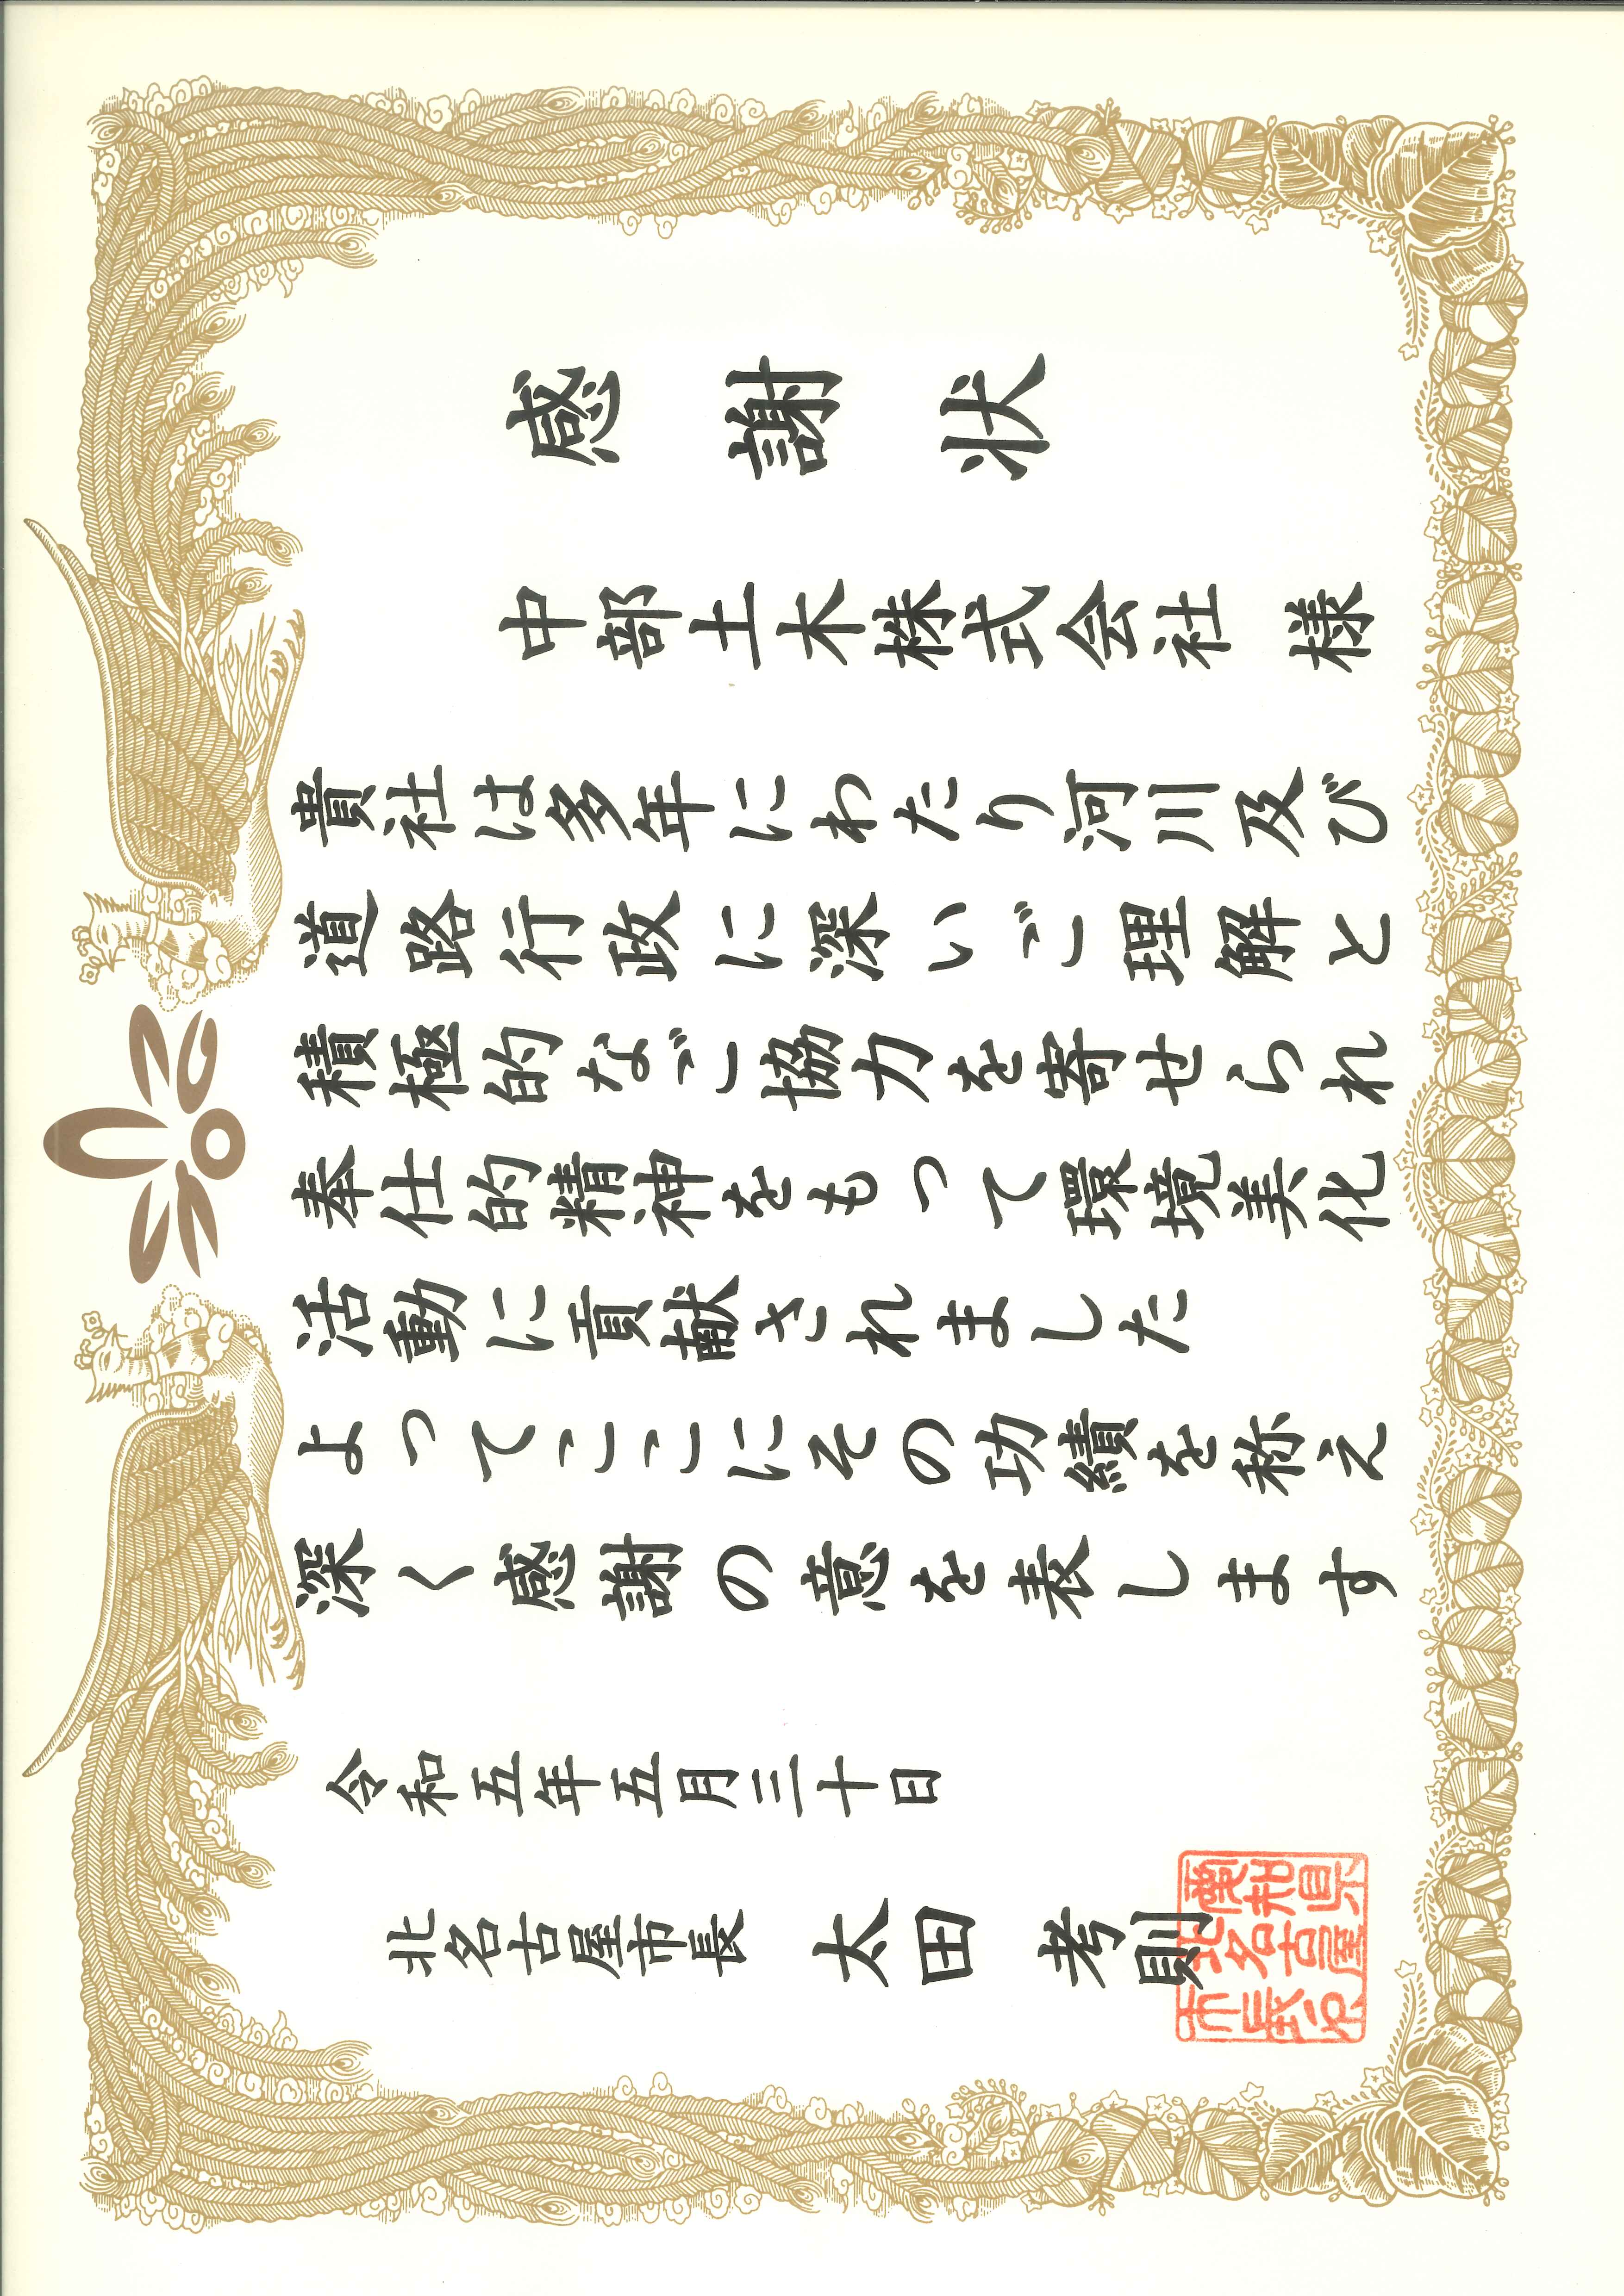 感謝状
中部土木株式会社 様
貴社は多年にわたり河川及び
道路行政に深いご理解と
積極的なご協力を寄せられ
奉仕的精神をもって環境美化
活動に貢献されました
よってここにその功績を称え
深く感謝の意を表します
令和五年五月三十日
北名古屋市長 太田考則
愛知県
北名古屋
市長之印